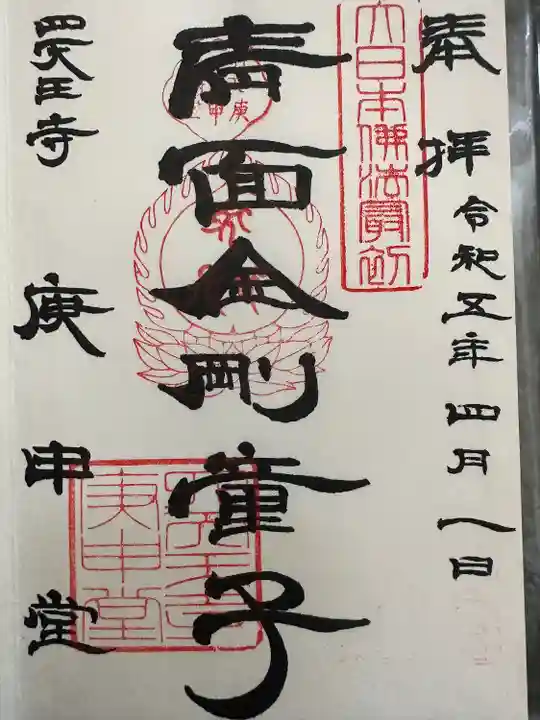 奉拝
令和五年四月八日
大日本佛法最初
青面金剛童子
庚申
四天王寺
庚申堂
四天王寺
庚申堂